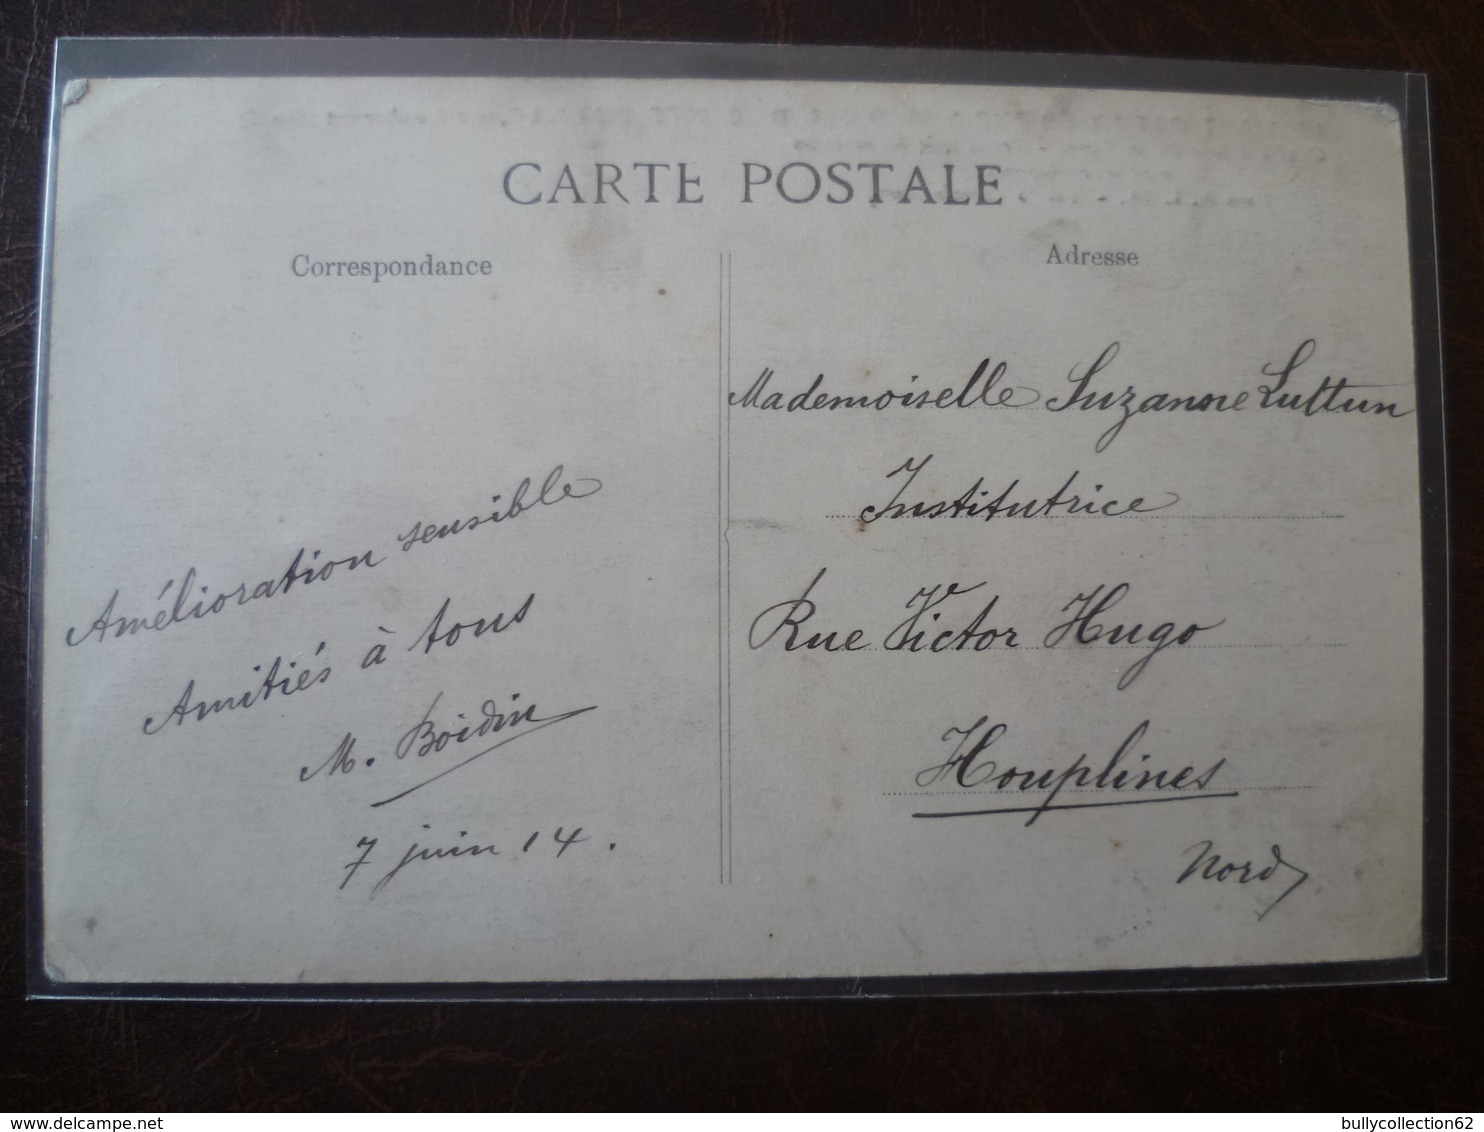 CARTE POSTALE
Correspondance
Amélioration sensible
Amitiés à tous
M. Boidin
7 juin 14.
Adresse
Mademoiselle Suzanne Luttun
Institutrice
Rue Victor Hugo
Houplines
Nord
delcampe.net
bullycollection62